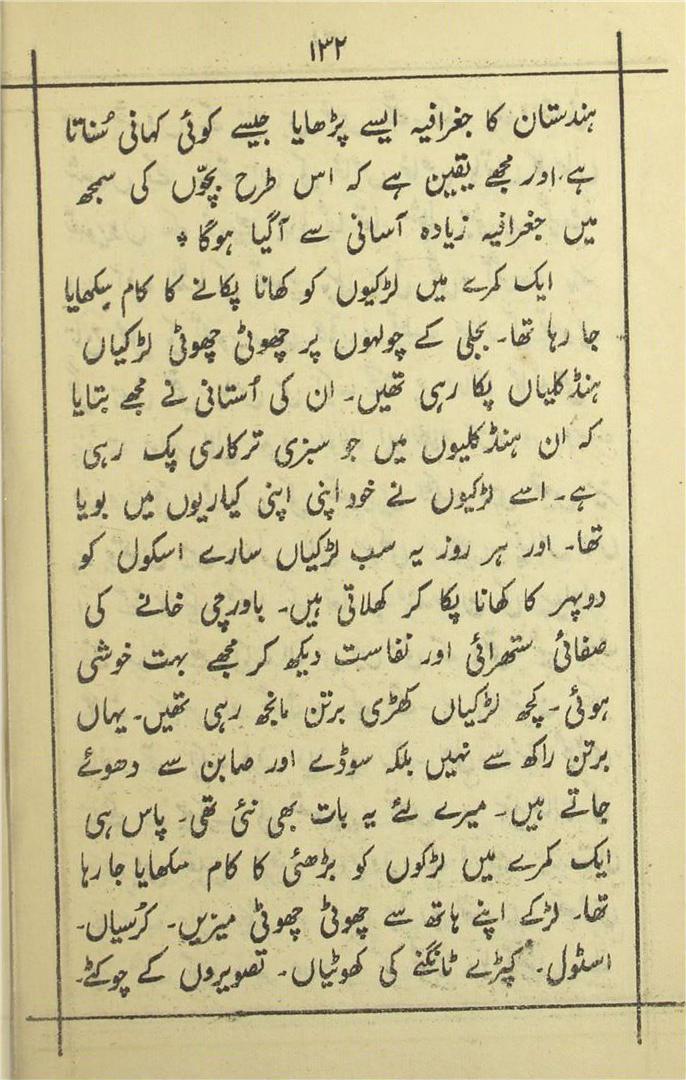 ۱۳۲
ہندستان کا جغرافیہ ایسے پڑھایا جیسے کوئی کہانی سُناتا
ہے، اور مجھے یقین ہے کہ اس طرح بچّوں کی سمجھ
میں جغرافیہ زیادہ آسانی سے آگیا ہوگا *
ایک کمرے میں لڑکیوں کو کھانا پکانے کا کام سِکھایا
جا رہا تھا۔ بجلی کے چولہوں پر چھوٹی چھوٹی لڑکیاں
ہنڈکلیاں پکا رہی تھیں۔ ان کی اُستانی نے مجھے بتایا
کہ ان ہنڈکلیوں میں جو سبزی ترکاری پک رہی
ہے۔ اسے لڑکیوں نے خود اپنی اپنی کیاریوں میں بویا
تھا۔ اور ہر روز یہ سب لڑکیاں سارے اسکول کو
دوپہر کا کھانا پکا کر کھلاتی ہیں۔ باورچی خانے کی
صفائی ستھرائی اور نفاست دیکھ کر مجھے بہت خوشی
ہوئی۔ کچھ لڑکیاں کھڑی برتن مانجھ رہی تھیں۔ یہاں
برتن راکھ سے نہیں بلکہ سوڈے اور صابن سے دھوئے
جاتے ہیں۔ میرے لئے یہ بات بھی نئی تھی۔ پاس ہی
ایک کمرے میں لڑکوں کو بڑھئی کا کام سکھایا جا رہا
تھا۔ لڑکے اپنے ہاتھ سے چھوٹی چھوٹی میزیں۔ کُرسیاں۔
اسٹول۔ کپڑے ٹانگنے کی کھوٹیاں۔ تصویروں کے چوکٹے۔